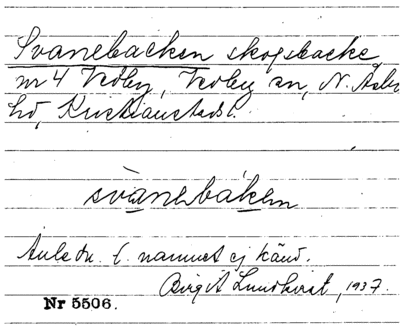 Svanebacken skogsbacke
nr 4 Vedby, Vedby sn, N. Åsbo
hd, Kristianstads l.
svanebaken
Anledn. t. namnet ej känd.
Birgit Lundkvist, 1937.
Nr 5506.